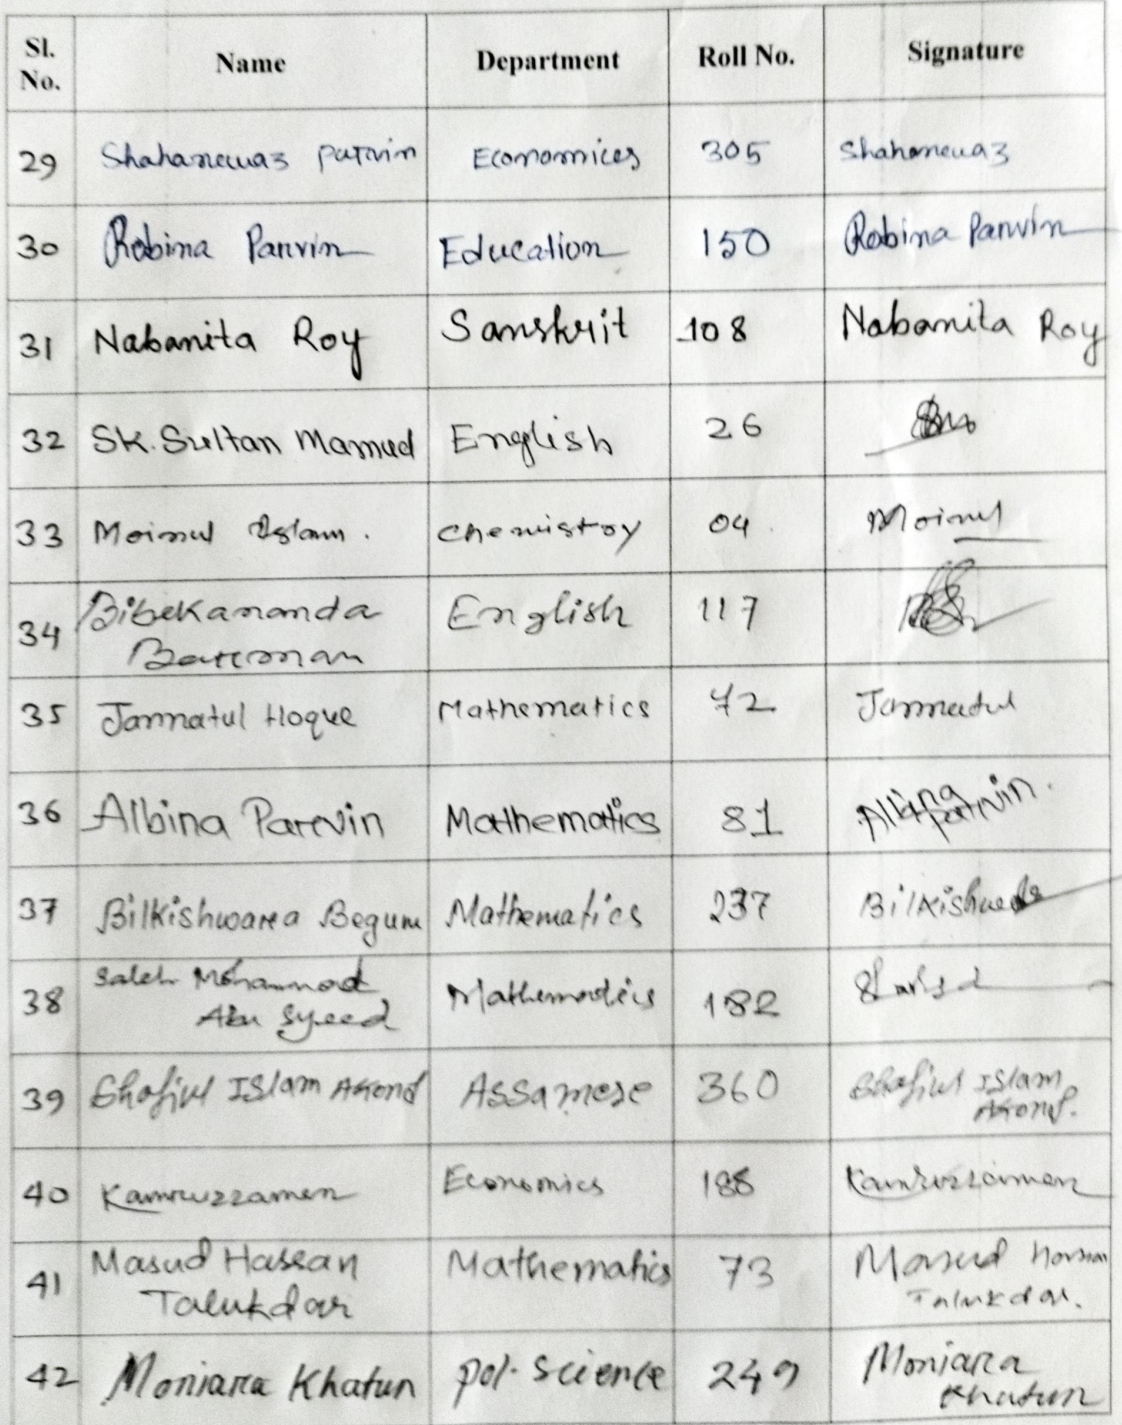 Sl. No. Name Department Roll No. Signature
29 Shahanewaz parvin Economices 305 Shahanewaz
30 Robina Parvin Education 150 Robina Parvin
31 Nabanita Roy Sanskrit 108 Nabanita Roy
32 SK. Sultan Mamud English 26
33 Moinul Islam. Chemistry 04 Moinul
34 Bibekananda Barman English 117
35 Jannatul Hoque Mathematics 72 Jannatul
36 Albina Parvin Mathematics 81 Albina Parvin.
37 Bilkishwara Begum Mathematics 237
38 Saleh Mohammad Abu Syeed Mathematics 182
39 Shofiul Islam Akond Assamese 360 Shofiul Islam Akond.
40 Kamruzzamen Economics 188 Kamruzzamen
41 Masud Hassan Talukdar Mathematics 73 Masud Hassan Talukdar.
42 Moniara Khatun pol. Science 249 Moniara Khatun